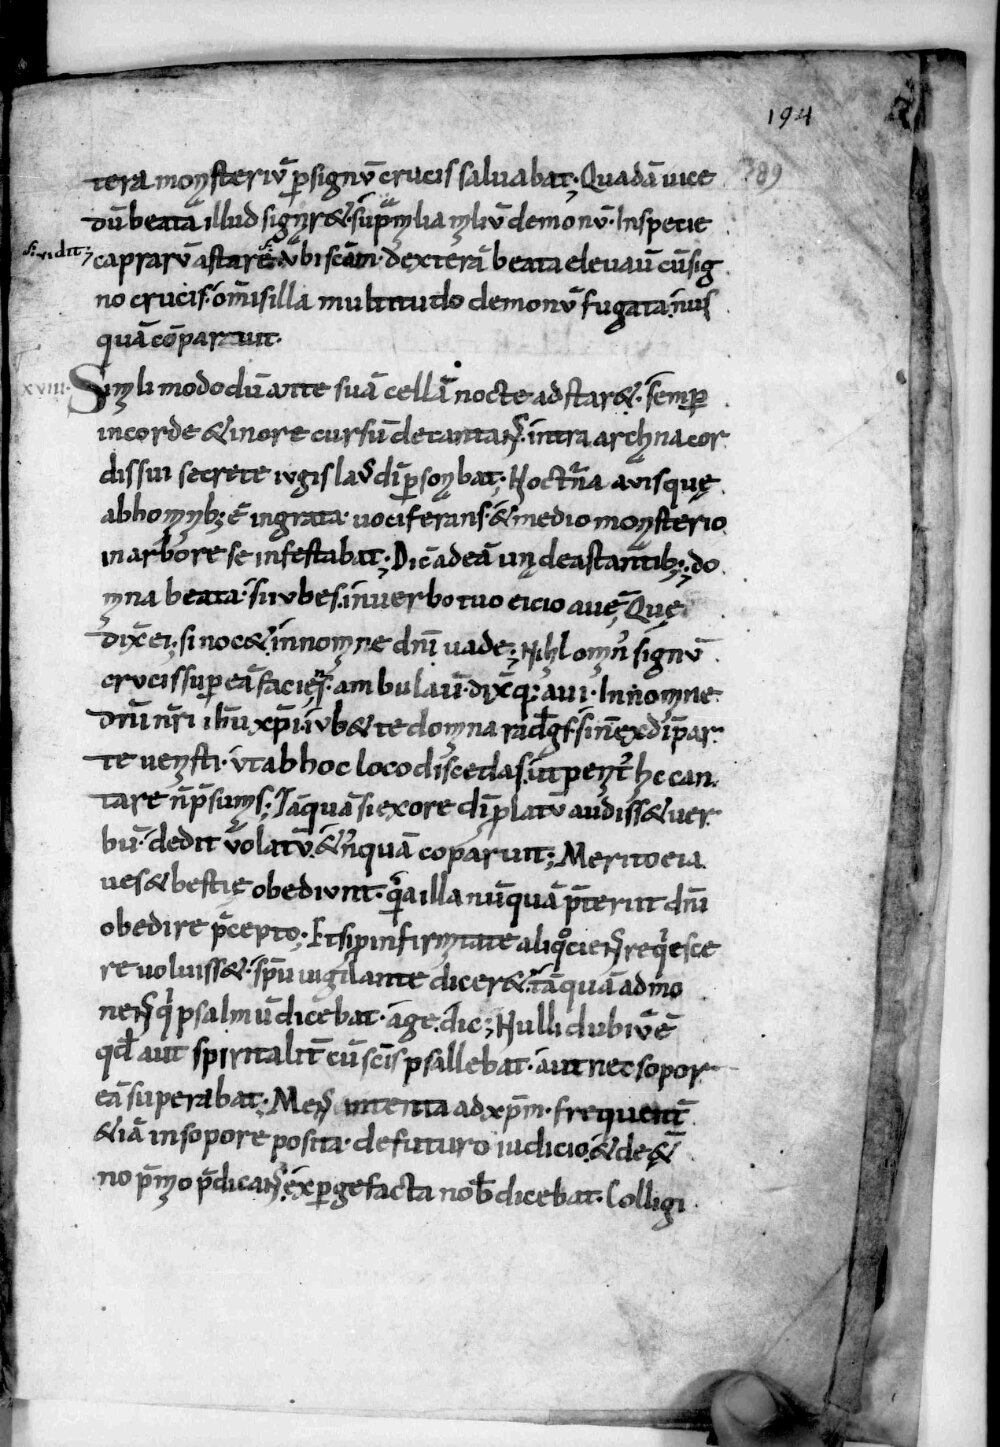 194
389
tera monsteriū ꝑ signū crucis saluabat; Quadā uice
dū beata illud signar& suꝑ milia miliū demonū. Inspetie
uidit; caprarū astare. ubi scām dexterā beata eleuaū cū sig
no crucis. om̄is illa multitudo demonū fugata. nus
quā cōparuit.
xviii. Simili modo dū ante suā cellā nocte adstar&. semꝑ
incorde & inore cursū decantans. intra archana cor
dis sui secrete iugis laus dī ꝑsonabat; Nocturna auis quę
abhominib; ē ingrata. uociferans. & medio monsterio
in arbore se infestabat; Dic̄ adeā un deastantib;. do
mna beata. si iubes. inuerbo tuo eicio auē; Quę
dix̄ ei; si noc& innomine dnī uade; Nihilomin signū
crucis suꝑ eā faciens. ambulaū. dix̄q; aui. In nomine
dnī nr̄i ihū xp̄i. iub& te domna radeg. si n̄ ex dī par
te uenisti. ut ab hoc loco discedas. ut penit hc can
tare n̄ p̄sumas; Tāquā si exore dī platū audiss& uer
bū. dedit uolatū. & nquā coparuit; Merito ei a
ues & bestię obediunt. quia illa nūquā p̄teriit dnī
obedire p̄cepto; Et si p infirmitate aliquociens requiesce
re uoluiss&. sp̄u uigilante dicer&. tāquā admo
nens qui psalmū dicebat. age. dic; Nulli dubiū ē
qd aut spiritalit̄ cū scīs psallebat. aut nec sopor
eā superabat; Mens intenta ad xp̄m. frequent̄
& iā in sopore posita. de futuro iudicio. & de &
no p̄mio p̄dicans. exꝑgefacta nob dicebat. Colligi